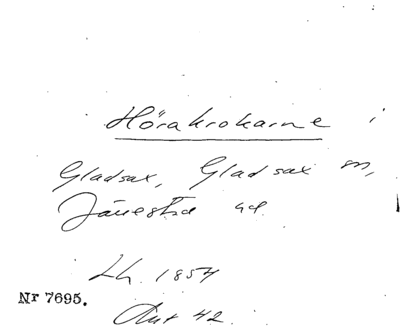 Hörakrokarne i
Gladsax, Gladsax sn,
Järrestad hd.
Lh. 1854
Nr 7695.
Ant 42.